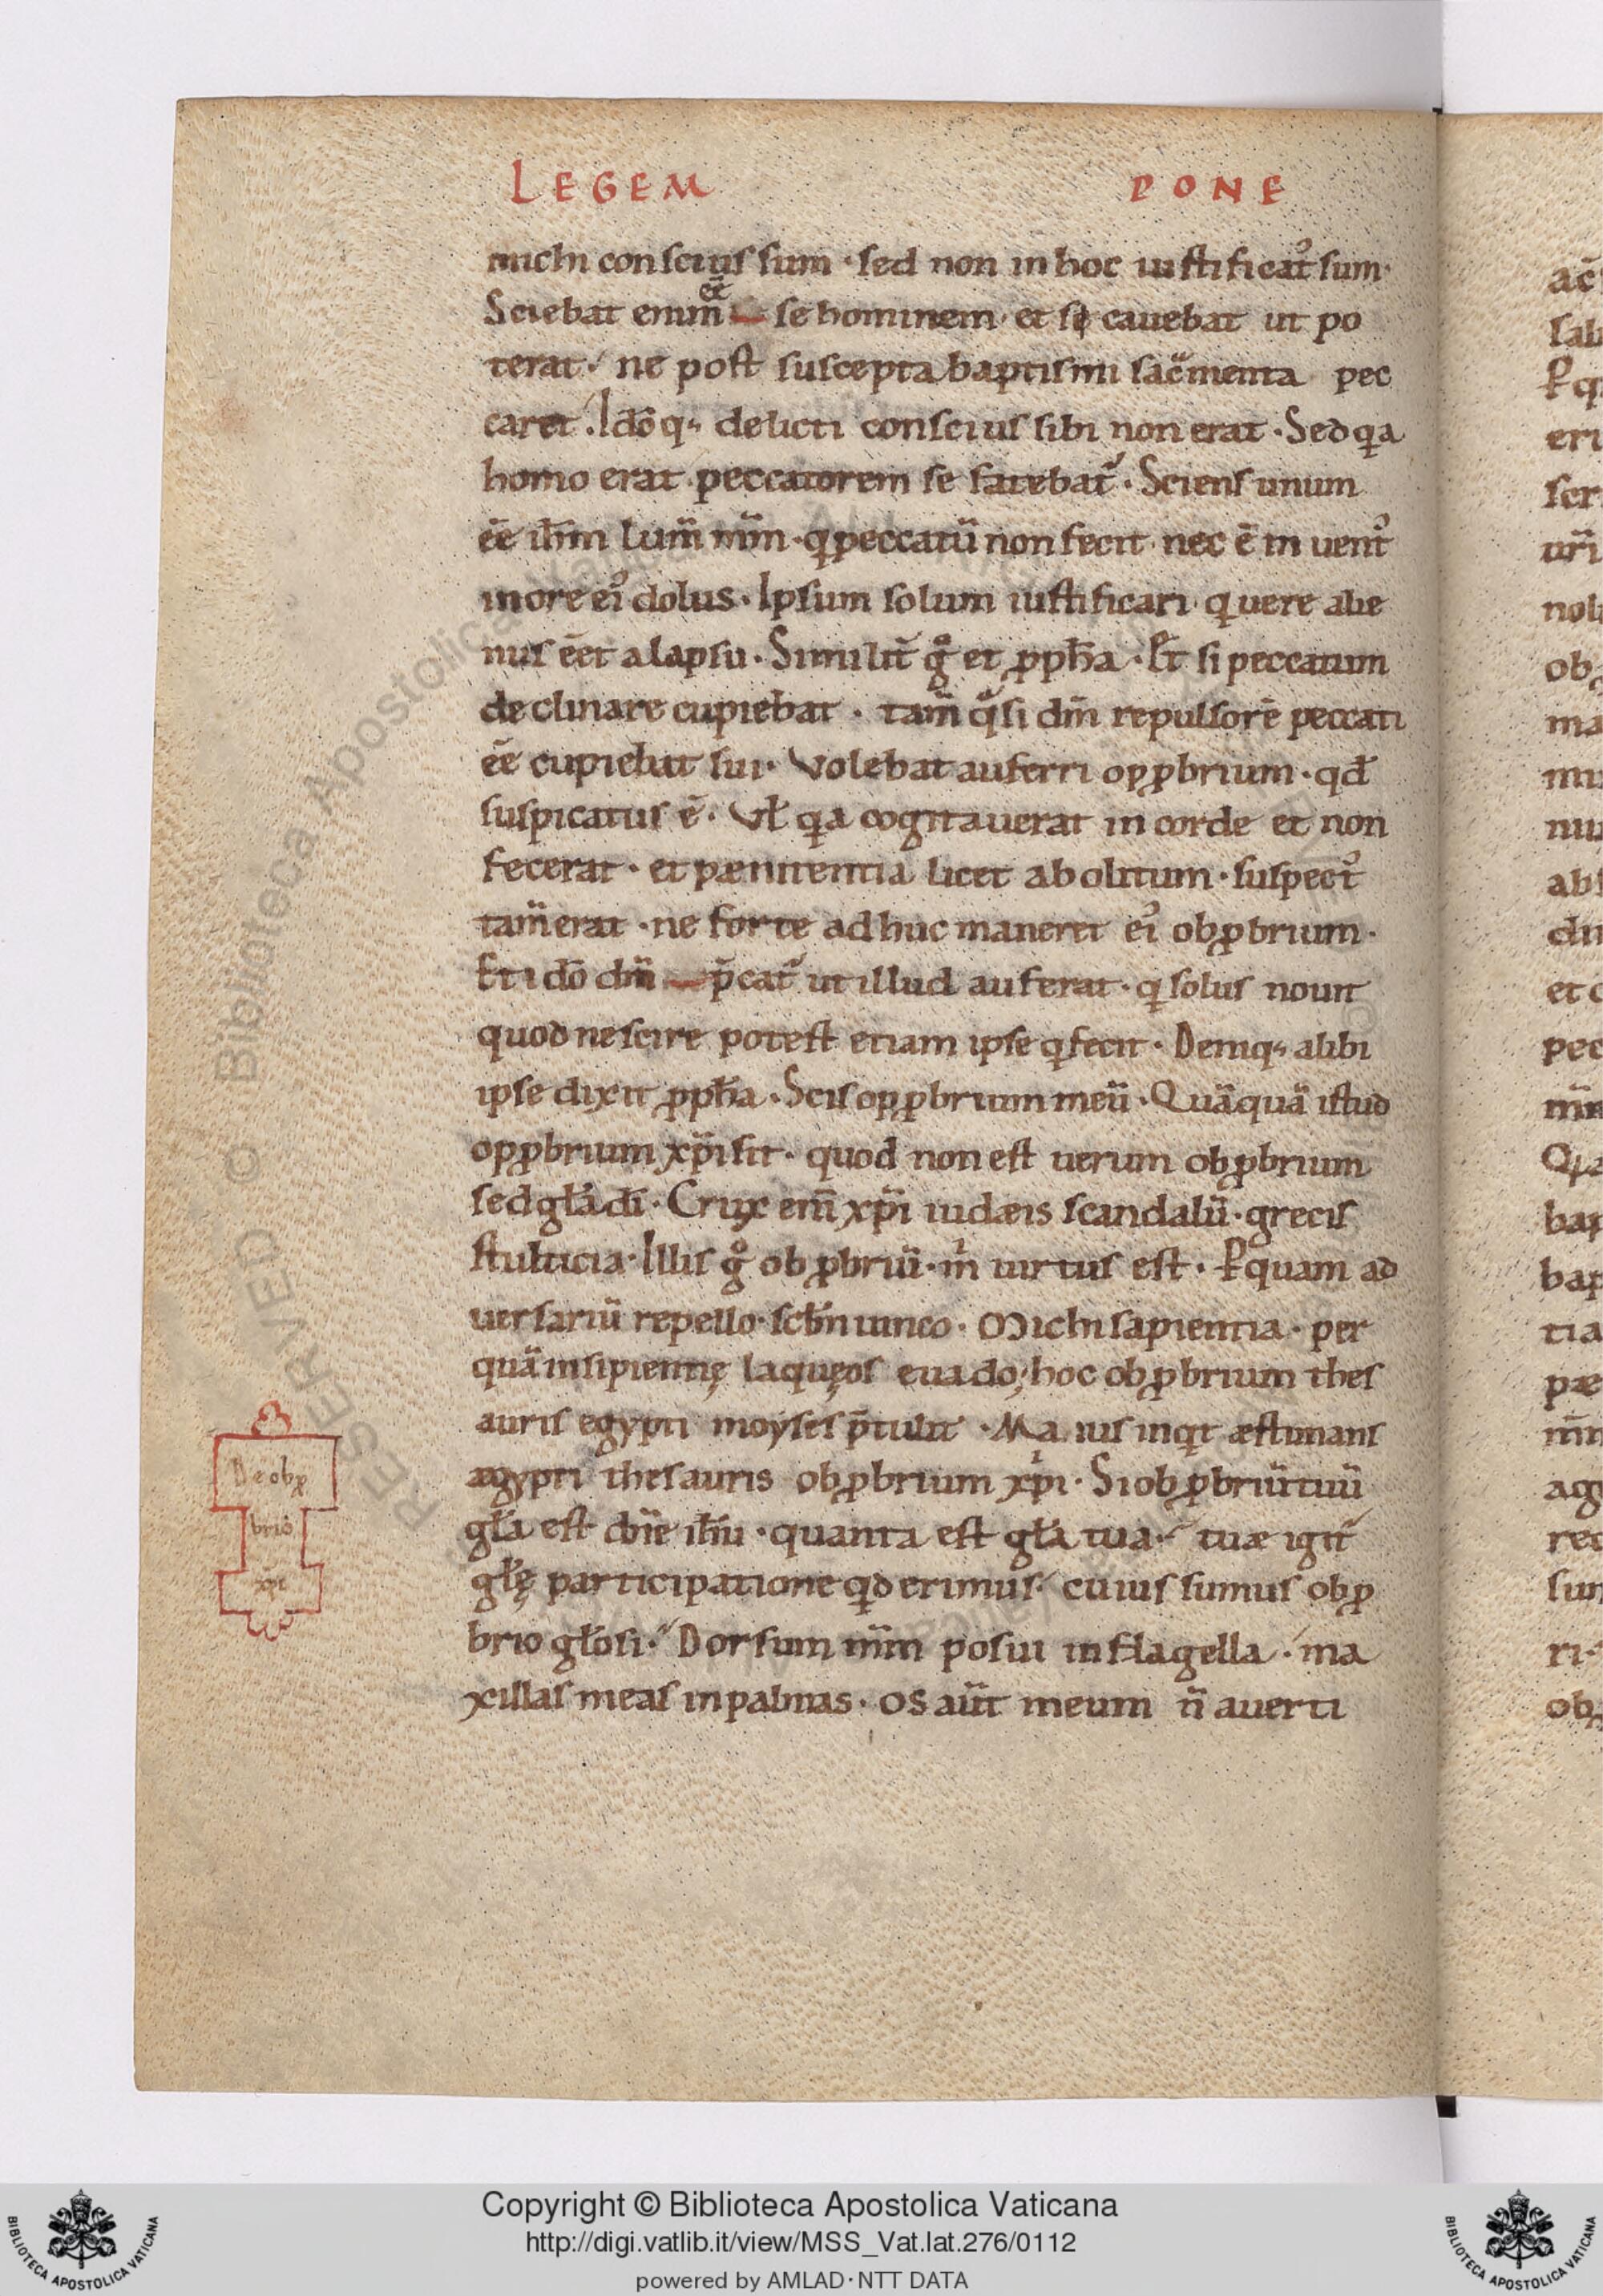 LEGEM PONE
michi conscius sum · sed non in hoc iustificat᾽ sum ·
ee᷃
Sciebat enim se hominem · et sic cauebat ut po
terat · ne post suscepta baptismi sac̄menta pec
caret · Idō q; delicti conscius sibi non erat · Sed qa
homo erat peccatorem se fatebat᷑ · Sciens unum
ēē ih̄m lum̄ nr̄m · q peccatū non fecit · nec ē inuent᾽
in ore ei᾽ dolus · Ipsum solum iustificari · q uere alie
nus ēēt a lapsu · Similit̄ gͦ et ꝓph̄a · Et si peccatum
declinare cupiebat · tam̄ qͣsi dn̄m repulsorē peccati
ēē cupiebat sui · Volebat auferri opꝓbrium · qd̄
suspicatus ē · Vł qa cogitauerat in corde et non
fecerat · et pænitentia licet abolitum · suspect᾽
tam̄ erat · ne forte adhuc maneret ei᾽ obꝓbrium ·
Et idō dn̄m p̄cat᷑ ut illud auferat · q solus nouit
quod nescire potest etiam ipse q fecit · Deniq; alibi
ipse dixit ꝓph̄a · Scis opꝓbrium meū · Quāquā istud
opꝓbrium xp̄i sit · quod non est uerum obꝓbrium
sed gła dī · Crux eni᷃ xp̄i iudæis scandalū · grecis
stulticia · Illis gͦ obꝓbriū · m̍ uirtus est · Ꝑ quam ad
uersariū repello · sc̄lm uinco · Michi sapientia · per
quā insipientię laquęos euado · hoc obꝓbrium thes
auris egypti moyses p̄tulit · Maius inqt æstimans
ægypti thesauris obꝓbrium xp̄i · Si obꝓbriū tuū
gła est dn̄e ih̄u · quanta est gła tua · tuæ igit᷑
głę participatione qd erimus · cuius sumus obꝓ
brio głosi · Dorsum m̄m posui in flagella · ma
xillas meas in palmas · os aūt meum n̄ auerti
De obꝓ
brio
xpi
RESERVED © Biblioteca Apostolica Vaticana
Copyright © Biblioteca Apostolica Vaticana
http://digi.vatlib.it/view/MSS_Vat.lat.276/0112
powered by AMLAD·NTT DATA
BIBLIOTECA APOSTOLICA VATICANA
BIBLIOTECA APOSTOLICA VATICANA